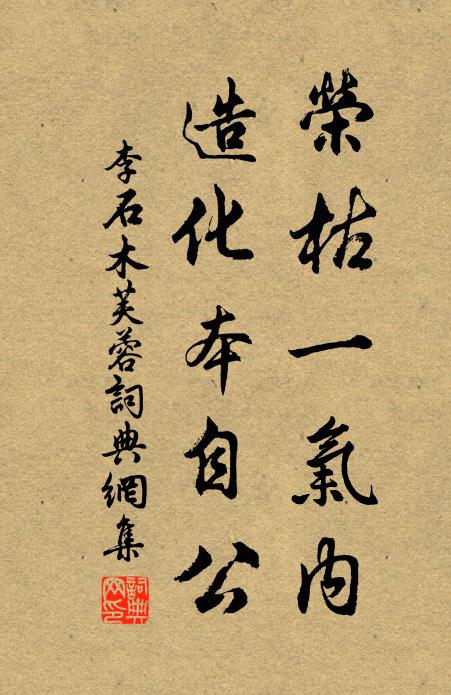 榮枯一氣內
造化本自公
李石木芙蓉詞典網集
詞典
网印